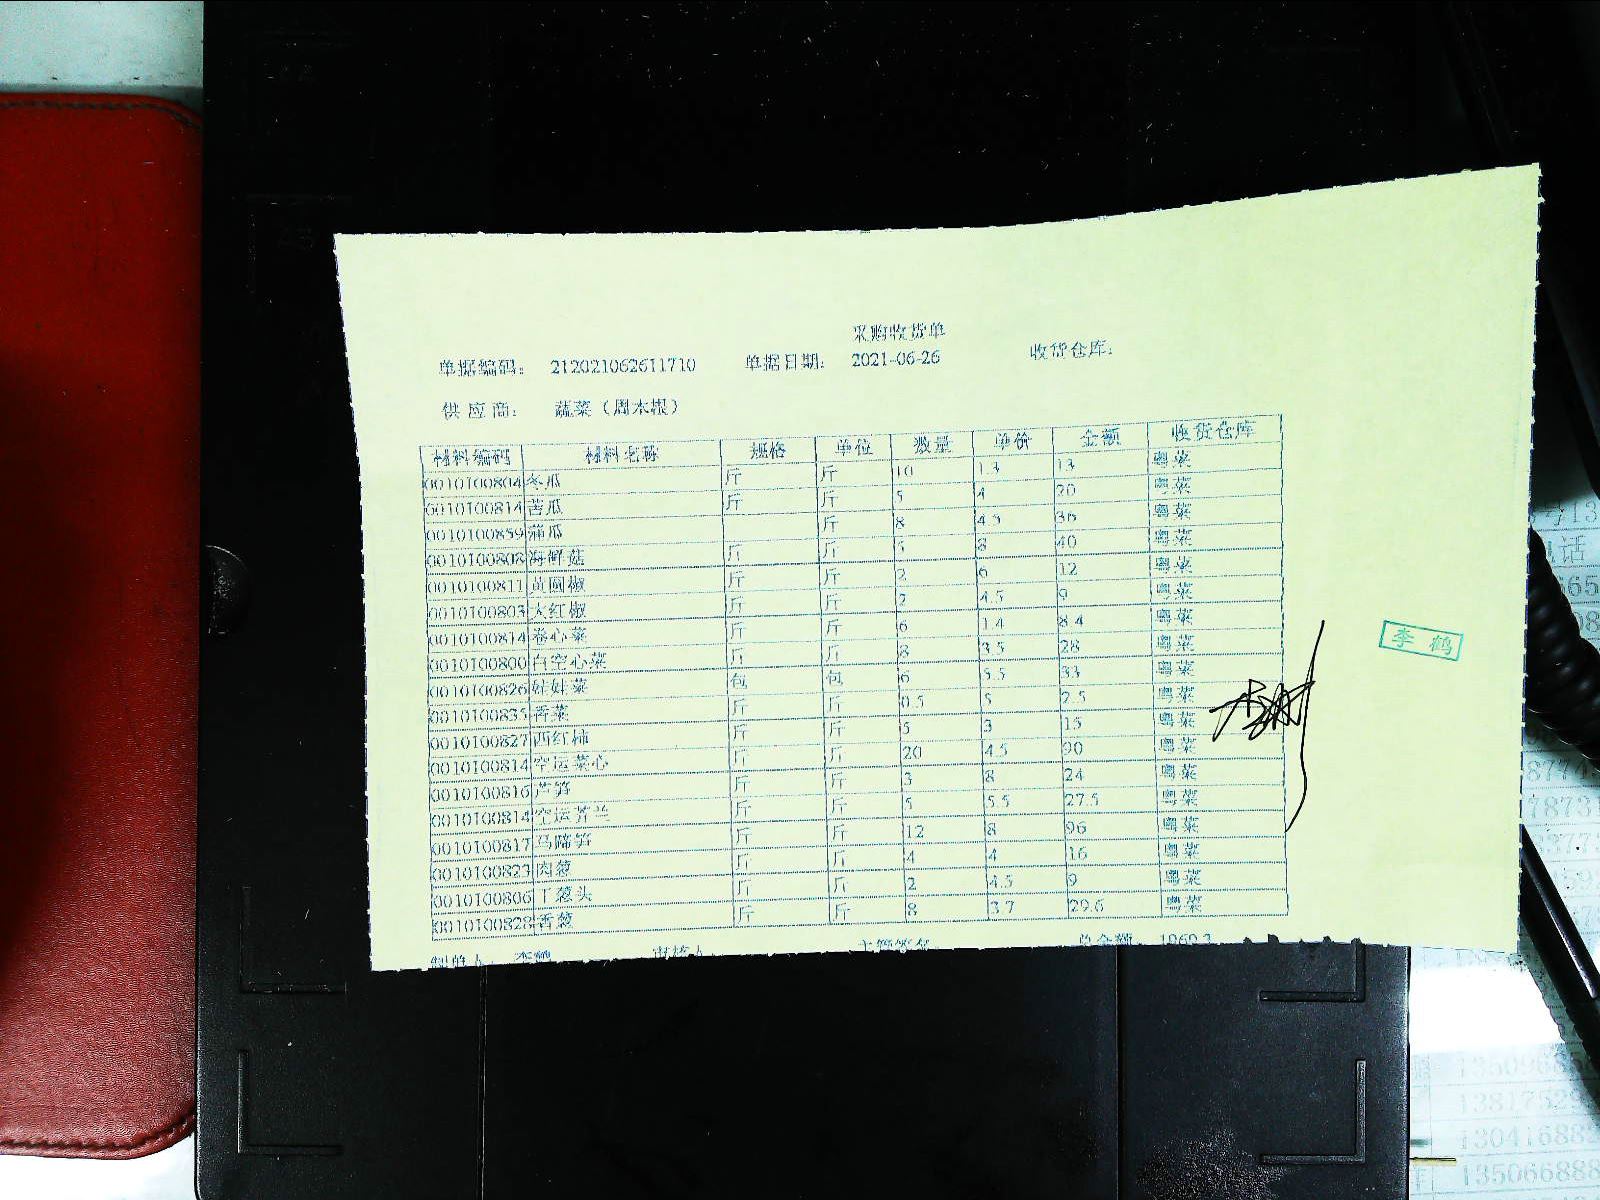 采购收货单
单据编码: 212021062611710 单据日期: 2021-06-26 收货仓库:
供应商: 蔬菜（周木根）
材料编码 材料名称 规格 单位 数量 单价 金额 收货仓库
0010100804 冬瓜 斤 斤 10 1.3 13 粤菜
0010100814 苦瓜 斤 斤 5 4 20 粤菜
0010100859 蒲瓜 斤 8 4.5 36 粤菜
0010100808 海鲜菇 斤 斤 5 8 40 粤菜
0010100811 黄圆椒 斤 斤 2 6 12 粤菜
0010100803 大红椒 斤 斤 2 4.5 9 粤菜
0010100814 卷心菜 斤 斤 6 1.4 8.4 粤菜
0010100800 白空心菜 斤 斤 8 3.5 28 粤菜
0010100826 娃娃菜 包 包 6 5.5 33 粤菜
0010100835 香菜 斤 斤 0.5 5 2.5 粤菜
0010100827 西红柿 斤 斤 5 3 15 粤菜
0010100814 空运菜心 斤 斤 20 4.5 90 粤菜
0010100816 芦笋 斤 斤 3 8 24 粤菜
0010100814 空运芥兰 斤 斤 5 5.5 27.5 粤菜
0010100817 马蹄笋 斤 斤 12 8 96 粤菜
0010100823 肉葱 斤 斤 4 4 16 粤菜
0010100806 干葱头 斤 斤 2 4.5 9 粤菜
0010100828 香葱 斤 斤 8 3.7 29.6 粤菜
制单人: 李鹤 审核人: 主管签名 总金额: 1060.3
李鹤